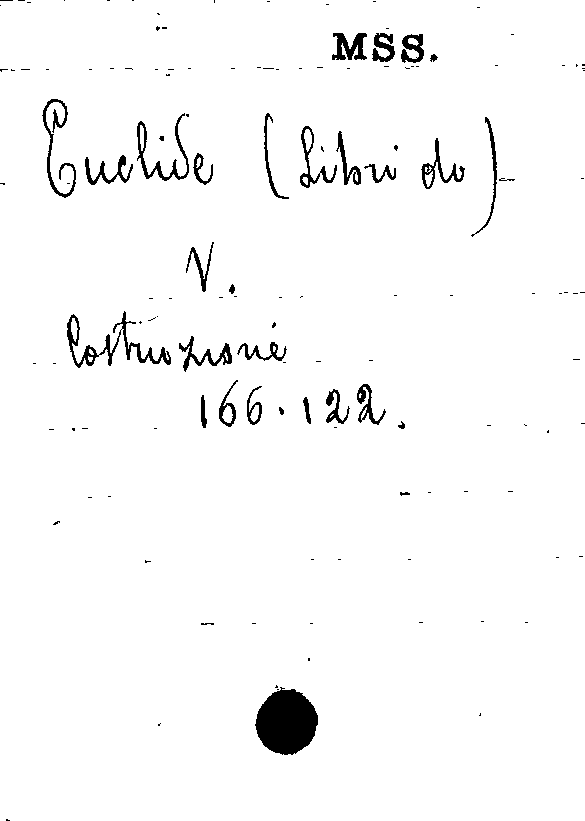 MSS.
Euclide (Libri di)
V.
Costruzione
166.122.